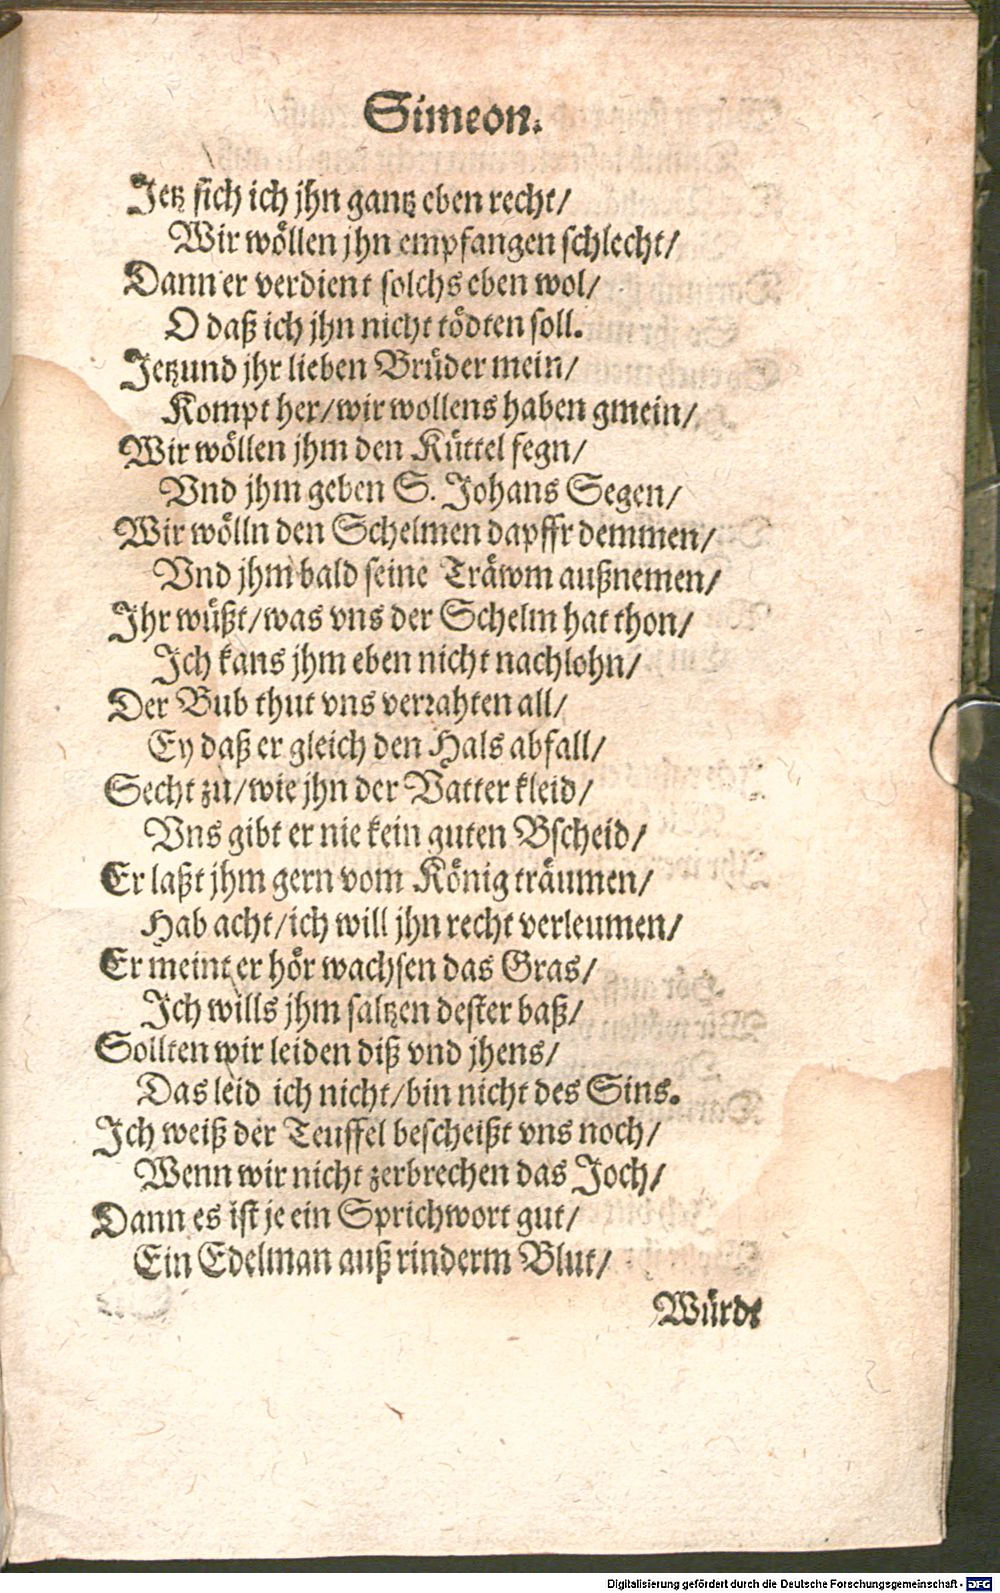 Simeon.
Jetz sich ich jhn gantz eben recht/
Wir wöllen jhn empfangen schlecht/
Dann er verdient solchs eben wol/
O daß ich jhn nicht tödten soll.
Jetzund jhr lieben Brüder mein/
Kompt her/wir wollens haben gmein/
Wir wöllen jhm den Küttel fegn/
Vnd jhm geben S. Johans Segen/
Wir wölln den Schelmen dapffr demmen/
Vnd jhm bald seine Träwm außnemen/
Ihr wüßt/was vns der Schelm hat thon/
Ich kans jhm eben nicht nachlohn/
Der Bub thut vns verrahten all/
Ey daß er gleich den Hals abfall/
Secht zu/wie jhn der Vatter kleid/
Vns gibt er nie kein guten Bscheid/
Er laßt jhm gern vom König träumen/
Hab acht/ich will jhn recht verleumen/
Er meint er hör wachsen das Gras/
Ich wills jhm saltzen dester baß/
Sollten wir leiden diß vnd jhens/
Das leid ich nicht/bin nicht des Sins.
Ich weiß der Teuffel bescheißt vns noch/
Wenn wir nicht zerbrechen das Joch/
Dann es ist je ein Sprichwort gut/
Ein Edelman auß rinderm Blut/
Würde
Digitalisierung gefördert durch die Deutsche Forschungsgemeinschaft - DFG